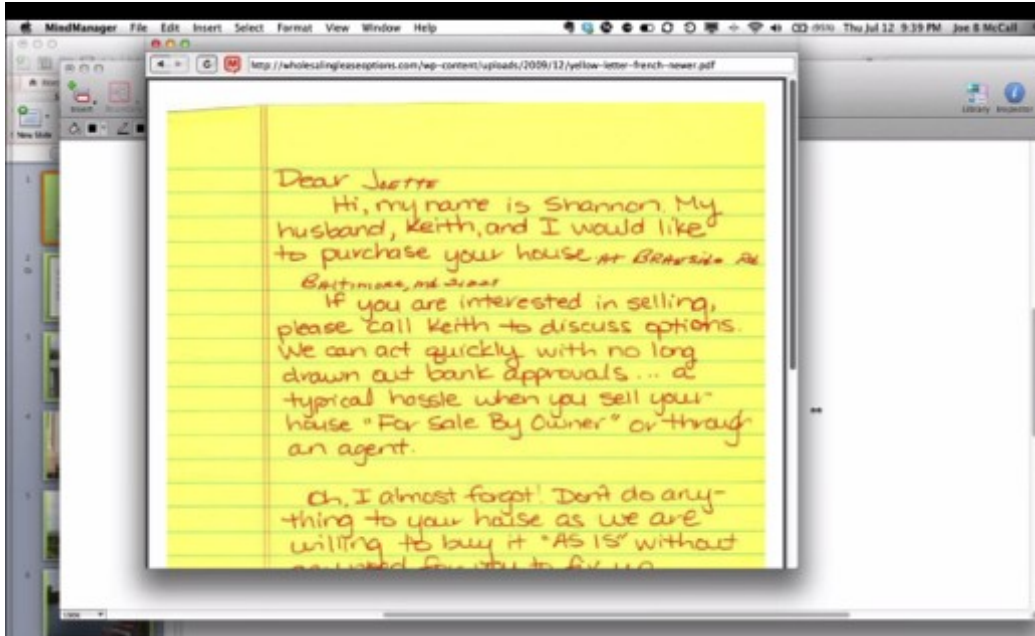 MindManager File Edit Insert Select Format View Window Help (95%) Thu Jul 12 9:39 PM Joe B McCall
http://wholesalingleaseoptions.com/wp-content/uploads/2009/12/yellow-letter-french-newer.pdf
Insert
Library Inspector
New Slide
Dear Joette
Hi, my name is Shannon. My
husband, Keith, and I would like
to purchase your house At
Baltimore, md
If you are interested in selling,
please call Keith to discuss options.
We can act quickly with no long
drawn out bank approvals... a
typical hassle when you sell your
house "For Sale By Owner" or through
an agent.
Oh, I almost forgot! Don't do any-
thing to your house as we are
willing to buy it "AS IS" without
any need for you to fix up